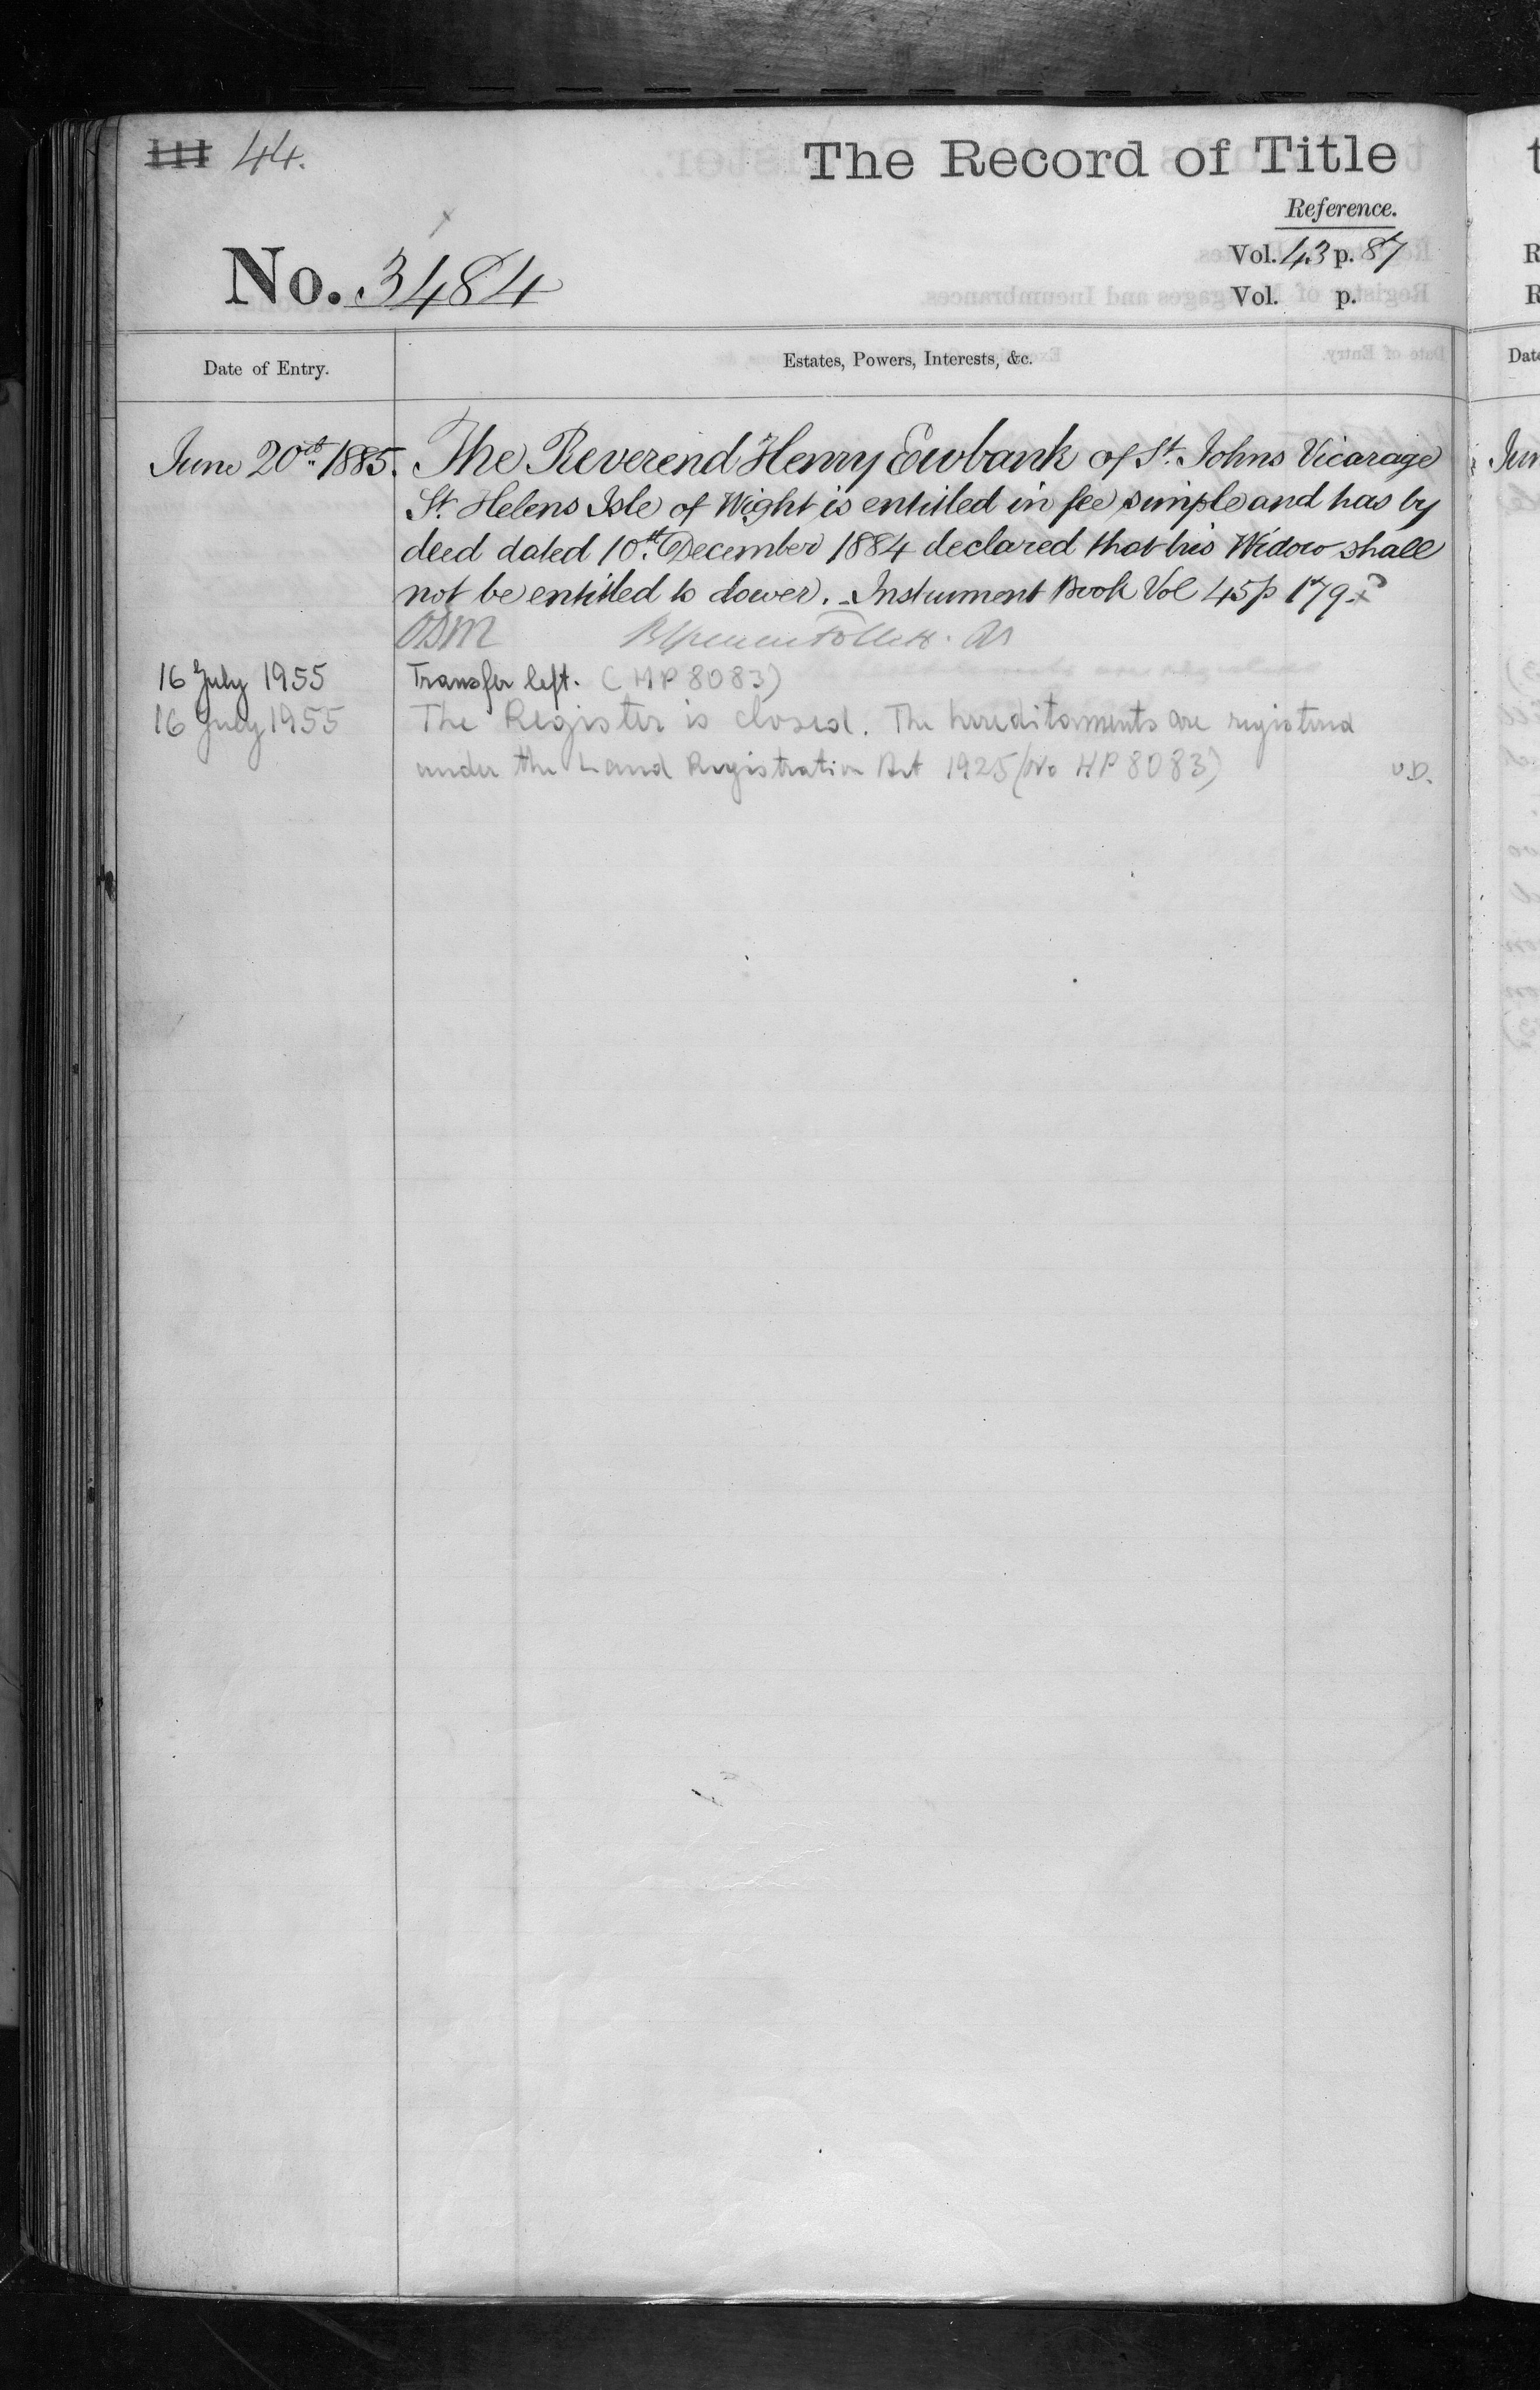 44.
The Record of Title
Reference.
No. 3484
Vol. 43 p. 87
Vol. p.
Date of Entry.
Estates, Powers, Interests, &c.
June 20th 1885. The Reverend Henry Ewbank of St. Johns Vicarage
St. Helens Isle of Wight is entitled in fee simple and has by
deed dated 10th December 1884 declared that his Widow shall
not be entitled to dower. - Instrument Book Vol 45 p 179
16 July 1955 Transfer left. (HP 8083)
16 July 1955 The Register is closed. The hereditaments are registered
under the Land Registration Act 1925 (No HP 8083)